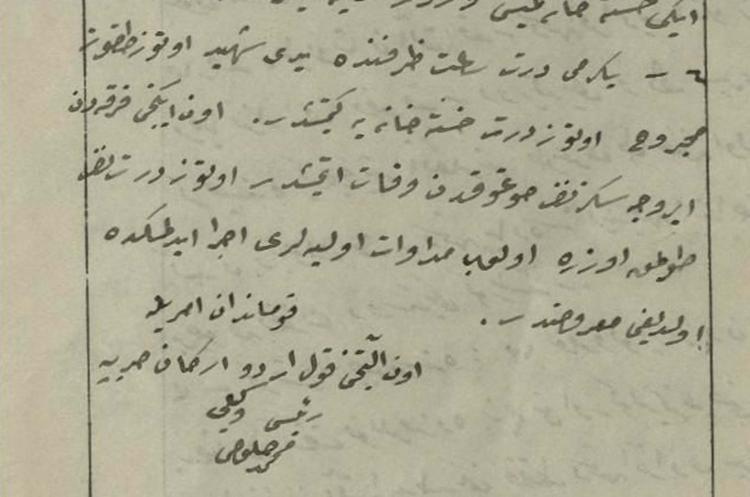 ایکی خسته خانه
٤ – یکرمی درت ساعت ظرفنده یدی شهید اوتوز طقوز
مجروح اوتوز درت خسته خانه یه کیتمشدر. اون ایکنجی فرقه دن
آیروجه سکز نفر صوغوقدن وفات ایتمشدر اوتوز درت نفر
طوکمق اوزره اولوب مداوات اولیه لری اجرا ایدلمکده
اولدیغی معروضدر.
قوماندان امریله
اون آلتنجی قول اردو ارکان حربیه
رئیسی وکیلی
محمد خلوصی